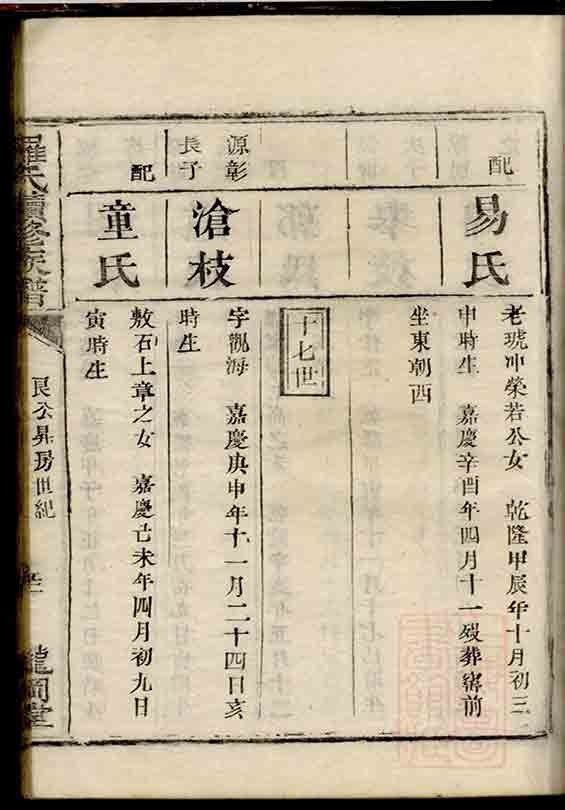 配
易氏
老琥冲榮若公女　乾隆甲辰年十月初三
申時生　嘉慶辛酉年四月十一殁葬
前
坐東朝西
十七世
源彰
長子
滄枝
字觀海　嘉慶庚申年十一月二十四日亥
時生
配
童氏
敷石上章之女　嘉慶己未年四月初九日
寅時生
羅氏續修族譜
良公昇房世紀
龍岡堂